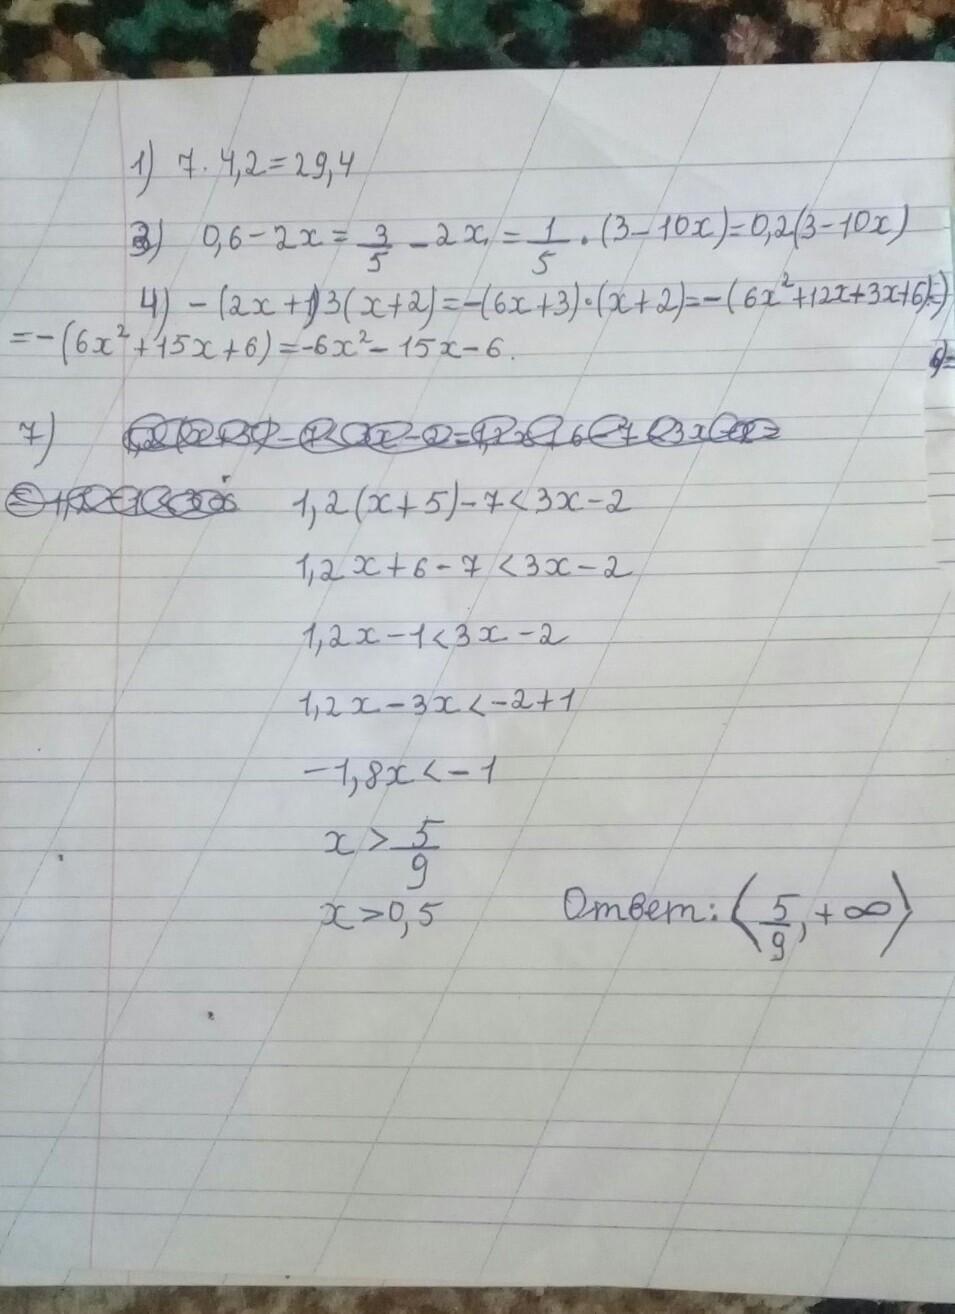 1) 7 · 4,2 = 29,4
3) 0,6 - 2x = 3/5 - 2x = 1/5 · (3 - 10x) = 0,2(3 - 10x)
4) - (2x + 1)3(x + 2) = -(6x + 3)·(x + 2) = -(6x² + 12x + 3x + 6) =
= -(6x² + 15x + 6) = -6x² - 15x - 6.
7)
1,2(x + 5) - 7 < 3x - 2
1,2x + 6 - 7 < 3x - 2
1,2x - 1 < 3x - 2
1,2x - 3x < -2 + 1
-1,8x < -1
x > 5/9
x > 0,5 Ответ: (5/9, +∞)